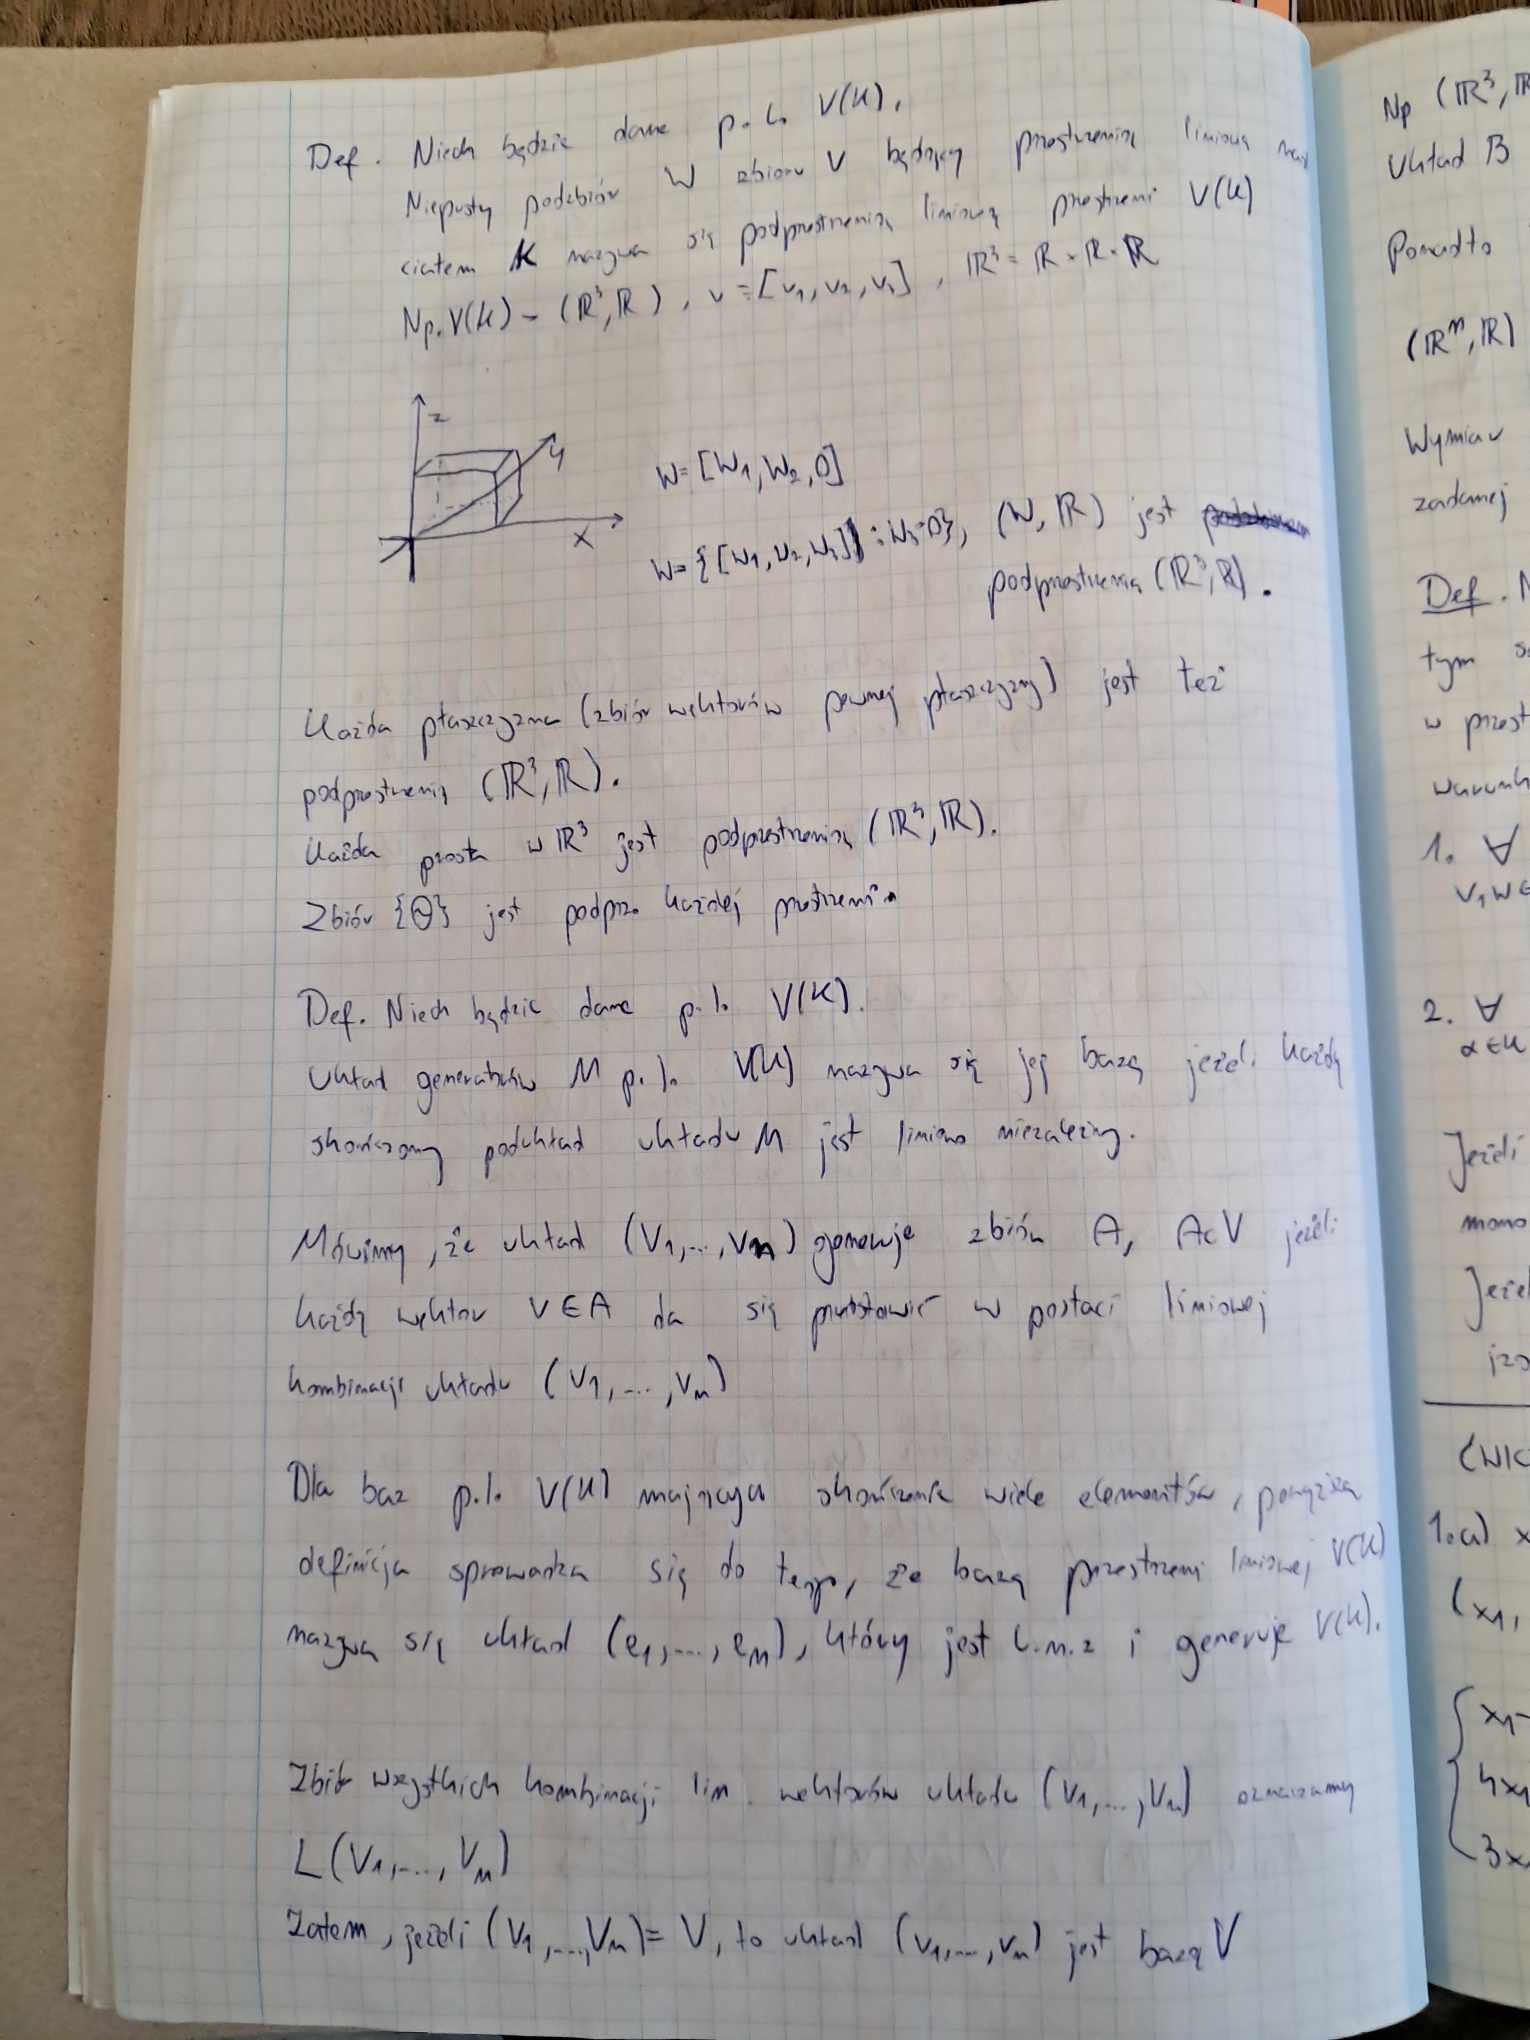 Def. Niech będzie dane p. l. V(K).
Niepusty podzbiór W zbioru V będący przestrzenią liniową nad
ciałem K nazywa się podprzestrzenią liniową przestrzeni V(K)
Np. V(K) - (ℝ³, ℝ), v = [v₁, v₂, v₃], ℝ³ = ℝ × ℝ × ℝ
z
y
x
W = [W₁, W₂, 0]
W = {[w₁, w₂, w₃] : w₃ = 0}, (W, ℝ) jest
podprzestrzenią (ℝ³, ℝ).
Każda płaszczyzna (zbiór wektorów pewnej płaszczyzny) jest też
podprzestrzenią (ℝ³, ℝ).
Każda prosta w ℝ³ jest podprzestrzenią (ℝ³, ℝ).
Zbiór {Θ} jest podprz. każdej przestrzeni.
Def. Niech będzie dane p. l. V(K).
Układ generatorów M p. l. V(K) nazywa się jej bazą jeżeli każdy
skończony podukład układu M jest liniowo niezależny.
Mówimy, że układ (V₁, ..., Vₙ) generuje zbiór A, A⊂V jeżeli
każdy wektor V∈A da się przedstawić w postaci liniowej
kombinacji układu (V₁, ..., Vₙ)
Dla baz p.l. V(K) mających skończenie wiele elementów, powyższa
definicja sprowadza się do tego, że bazą przestrzeni liniowej V(K)
nazywa się układ (e₁, ..., eₙ), który jest l.n.z i generuje V(K).
Zbiór wszystkich kombinacji lin. wektorów układu (V₁, ..., Vₙ) oznaczamy
L(V₁, ..., Vₙ)
Zatem, jeżeli (V₁, ..., Vₙ) = V, to układ (v₁, ..., vₙ) jest bazą V
Np (ℝ³, ℝ
Układ B
Ponadto
(ℝⁿ, ℝ)
Wymiar
zadanej
Def. N
tym s
w przest
warunk
1. ∀
V, W ∈
2. ∀
α ∈ K
Jeżeli
mono
Jeżel
izo
ĆWIC
1. a) x
(x₁,
x₁-
4x₁
3x